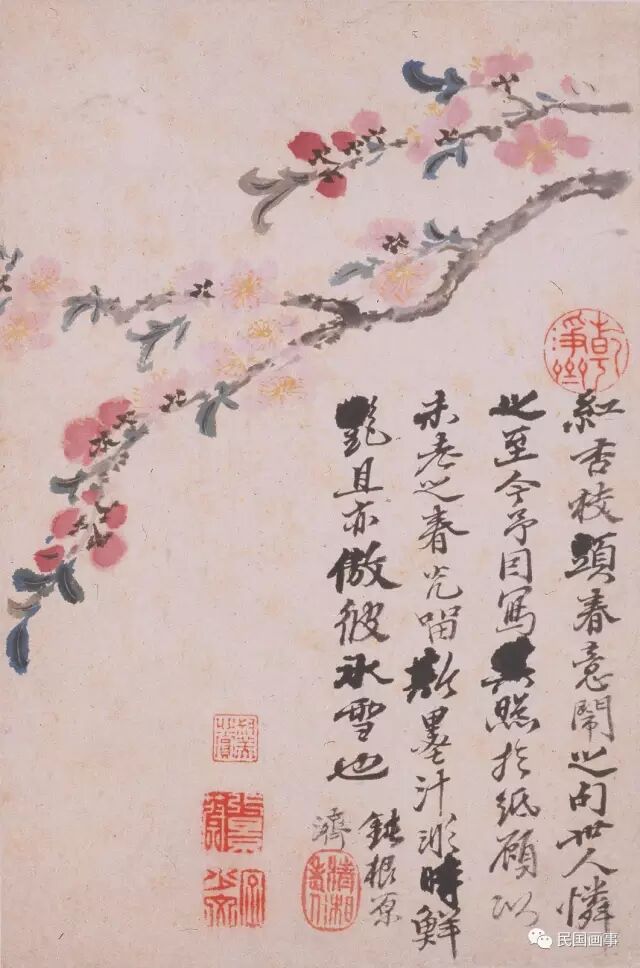 紅杏枝頭春意鬧之句世人憐
之至今予因寫其照於紙顧以
未老之春光留斯墨汁濃時鮮
艷且亦傲彼冰雪也
鈍根原
濟
民国画事